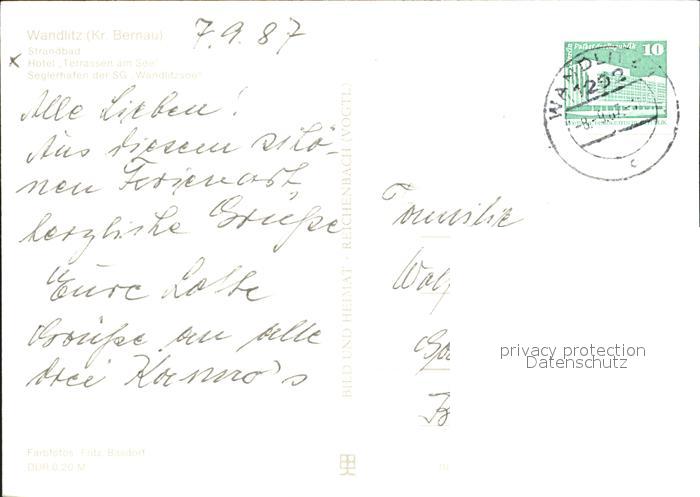 Wandlitz (Kr. Bernau)
7.9.87
Strandbad
x Hotel „Terrassen am See“
Seglerhafen der SG „Wandlitzsee“
Alle Lieben!
Aus diesem schö-
nen Ferienort
herzliche Grüße
Eure Lotte
Grüße an alle
drei
BILD UND HEIMAT · REICHENBACH (VOGTL)
Farbfotos: Fritz, Basdorf
DDR 0,20 M
Palast der Republik 10
WANDLITZ
1292
c
Familie
privacy protection
Datenschutz